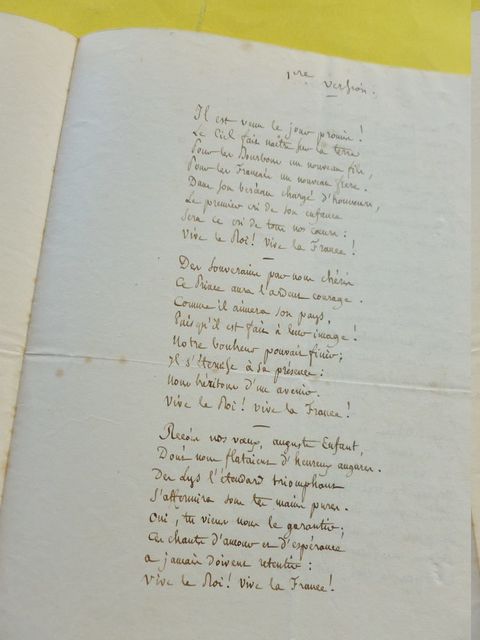 1ere version.
Il est venu le jour promis !
Le Ciel fait naître sur la terre
Pour les Bourbons un nouveau fils,
Pour les Français un nouveau frère.
Dans son berceau chargé d'honneurs,
Le premier cri de son enfance
Sera ce cri de tous nos cœurs :
Vive le Roi ! Vive la France !
Des Souverains par nous chéris
Ce Prince aura l'ardent courage.
Comme il aimera son pays,
Puisqu'il est fait à leur image !
Notre bonheur pouvait finir ;
Il s'éternise à sa présence :
Nous héritons d'un avenir.
Vive le Roi ! Vive la France !
Reçois nos vœux, auguste Enfant,
Dont nous flattaient d'heureux augures.
Des Lys l'étendard triomphant
S'affermira sous tes mains pures.
Oui, tu viens nous le garantir ;
Ces chants d'amour et d'espérance
à jamais doivent retentir :
Vive le Roi ! Vive la France !